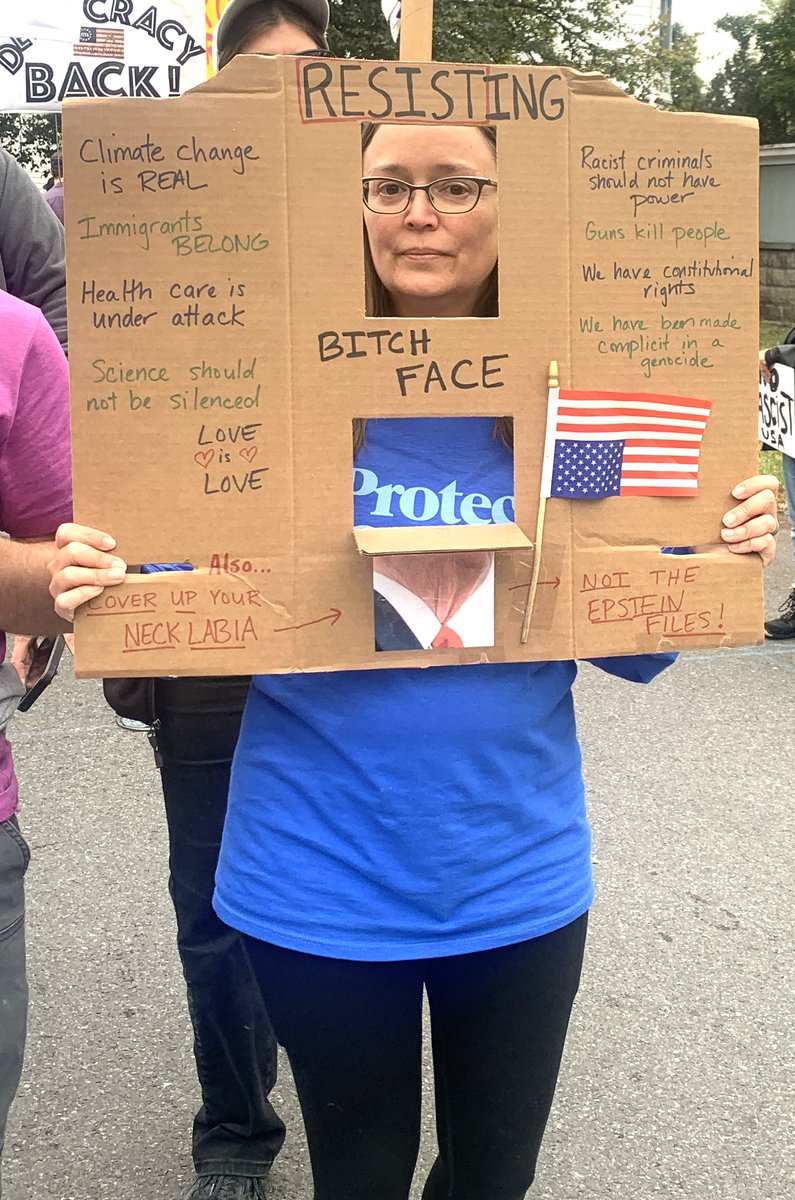 CRACY
BACK!
RESISTING
Climate change
is REAL
Immigrants
BELONG
Health care is
under attack
Science should
not be silenced
LOVE
is
LOVE
BITCH
FACE
Racist criminals
should not have
power
Guns kill people
We have constitutional
rights
We have been made
complicit in a
genocide
Protec
Also...
COVER UP YOUR
NECK LABIA
NOT THE
EPSTEIN
FILES!
USA